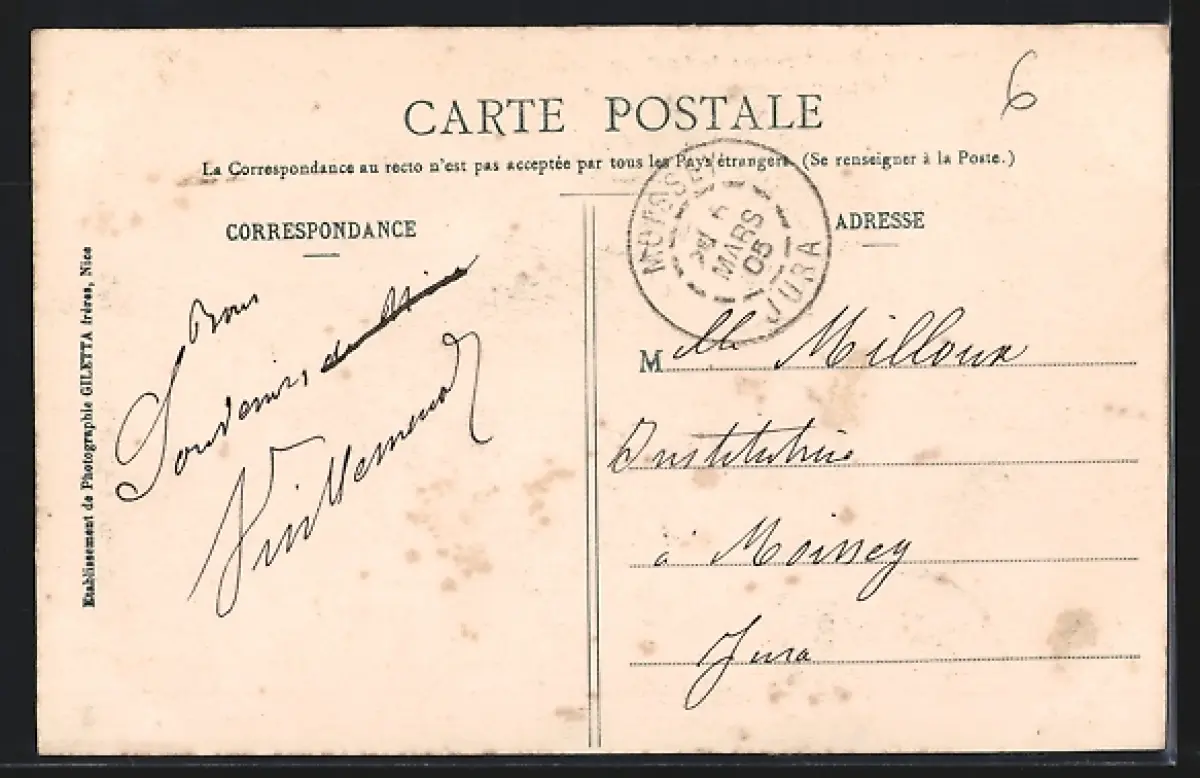 6
CARTE POSTALE
La Correspondance au recto n'est pas acceptée par tous les Pays étrangers. (Se renseigner à la Poste.)
CORRESPONDANCE
Bons
Souvenirs
Vuillemenot
Etablissement de Photographie GILETTA frères, Nice
MOISSEY
MARS
05
JURA
ADRESSE
Melle Milloux
Institutrice
à Moissey
Jura